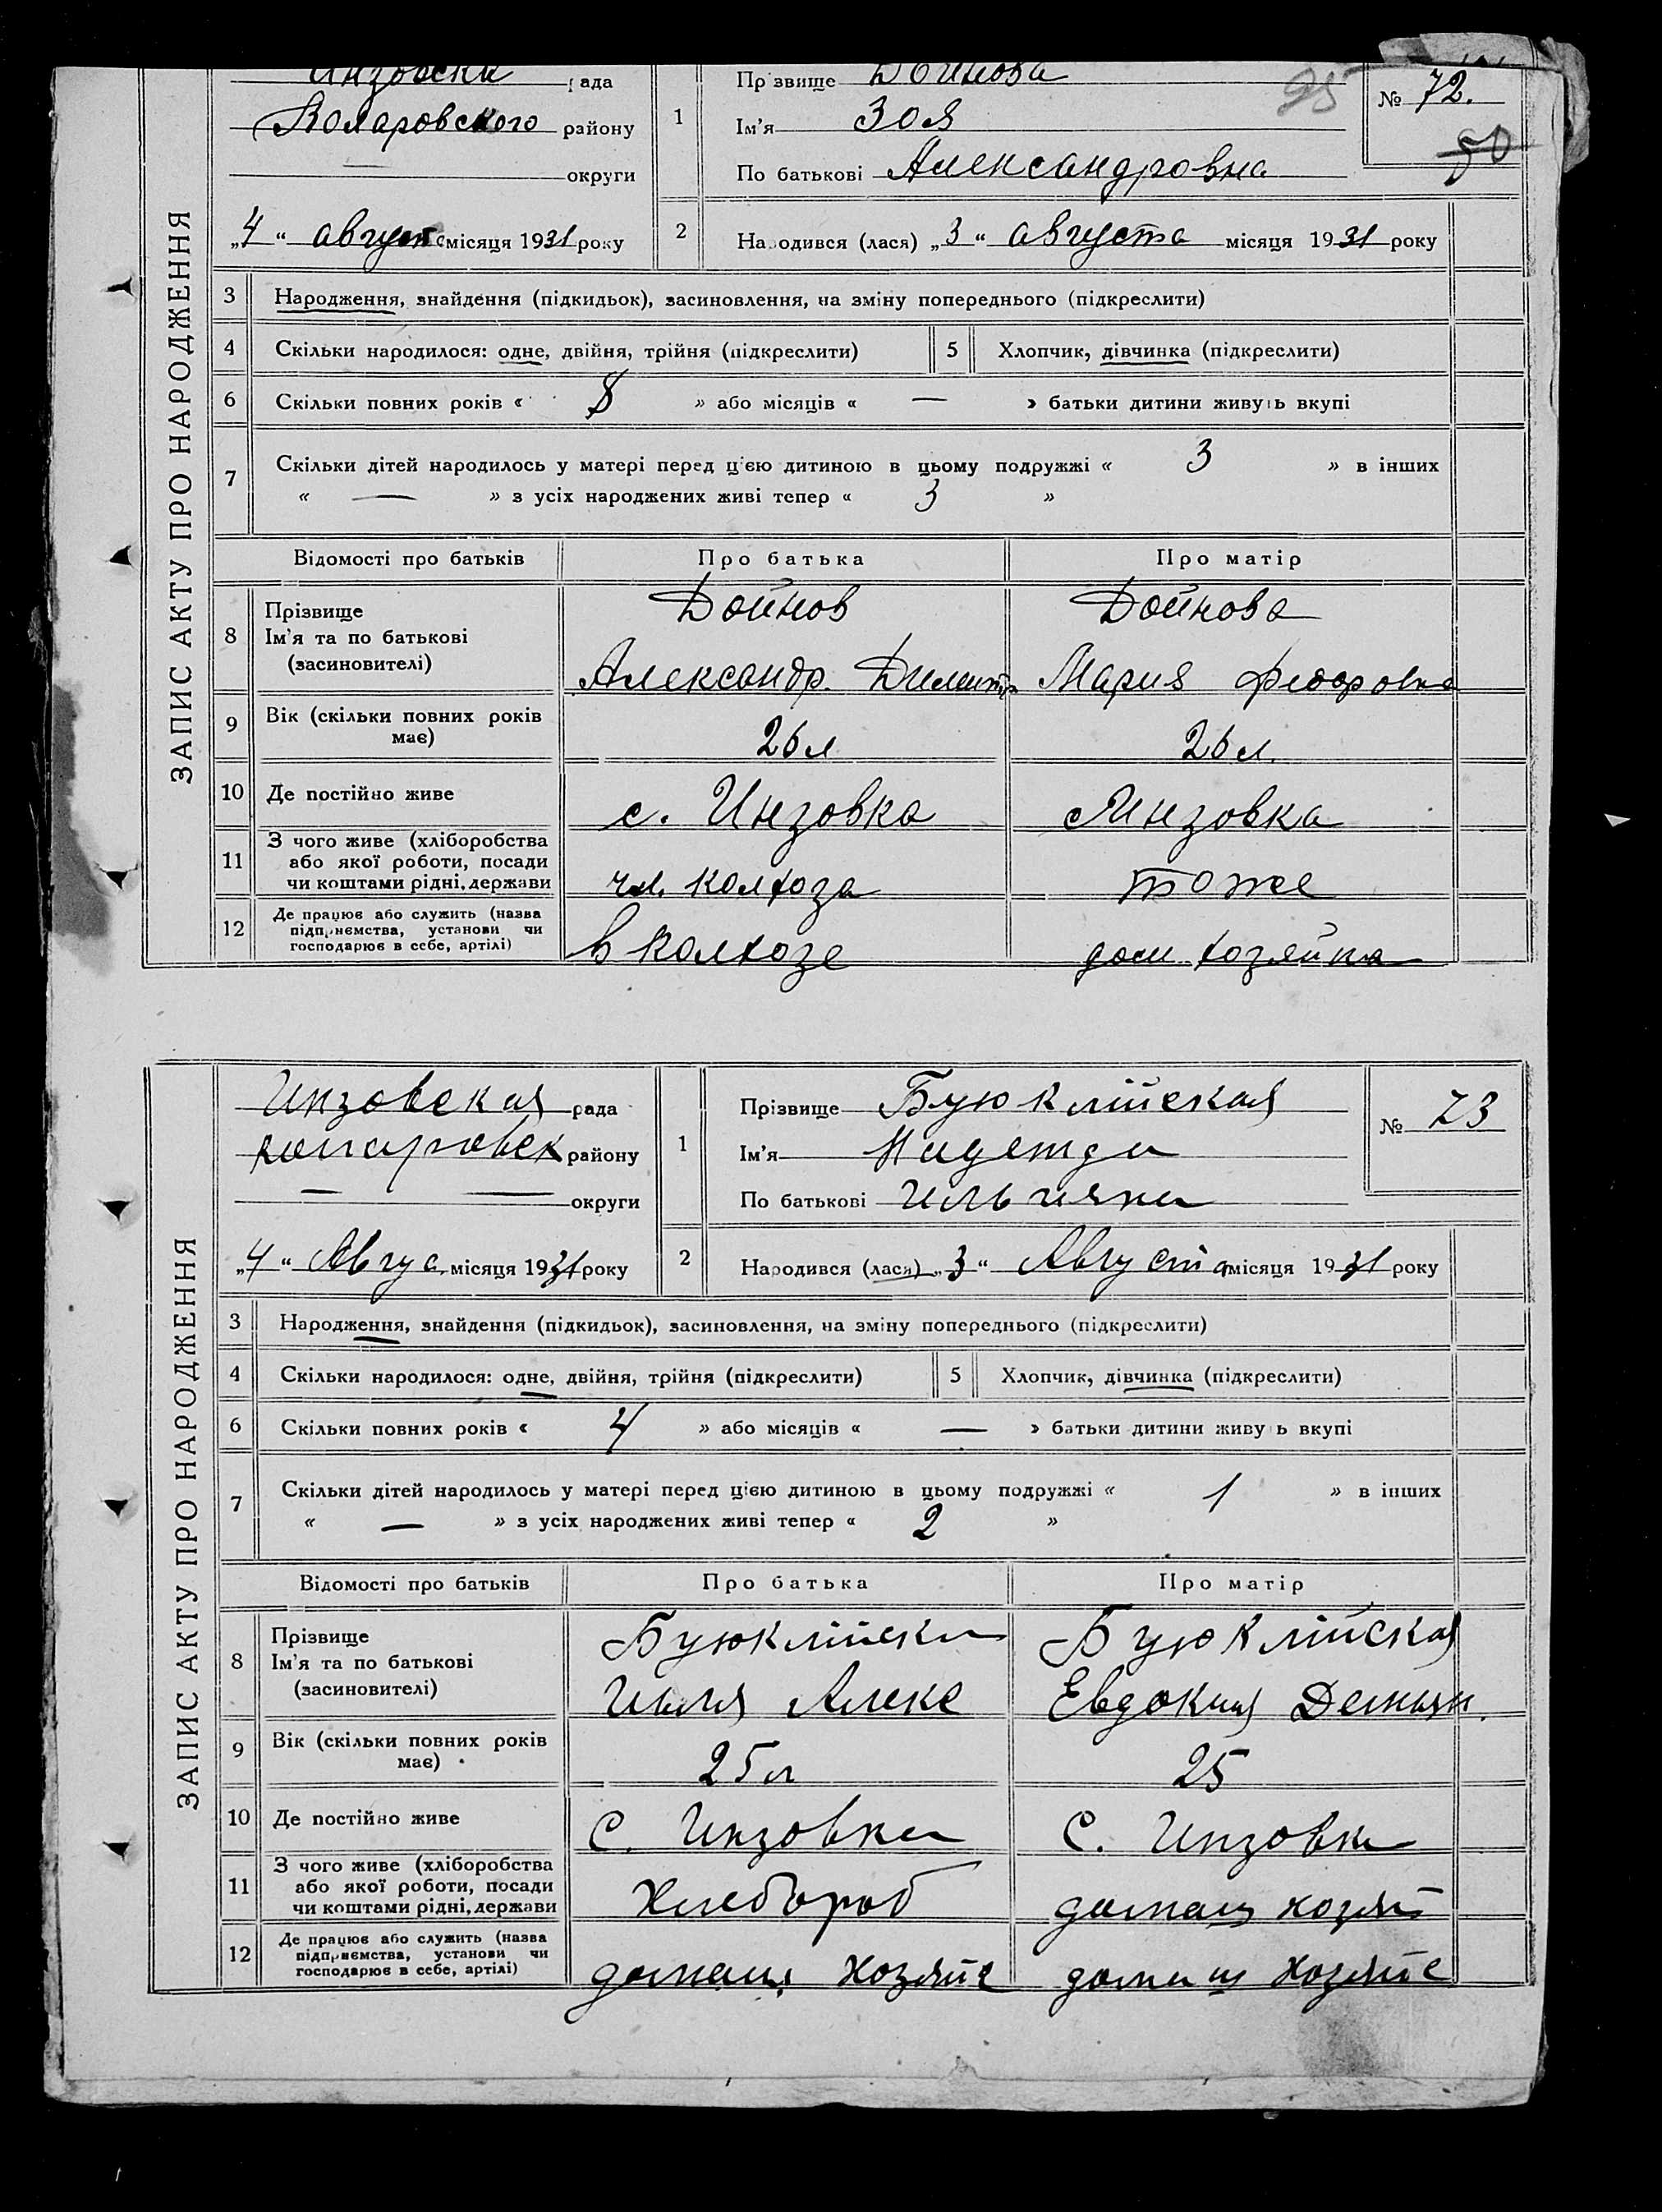 ЗАПИС АКТУ ПРО НАРОДЖЕННЯ
Инзовска рада
Коларовского района району
— округи
„4“ августа місяця 1931 року
1
Прізвище Дойнова
Ім'я Зоя
По батькові Александровна
95
№ 72.
50
2
Народився (лася) „3“ августа місяця 1931 року
3 Народження, знайдення (підкидьок), засиновлення, на зміну попереднього (підкреслити)
4 Скільки народилося: одне, двійня, трійня (підкреслити) 5 Хлопчик, дівчинка (підкреслити)
6 Скільки повних років « 8 » або місяців « — » батьки дитини живуть вкупі
7 Скільки дітей народилось у матері перед цією дитиною в цьому подружжі « 3 » в інших
« — » з усіх народжених живі тепер « 3 »
Відомості про батьків Про батька Про матір
8 Прізвище Ім'я та по батькові (засиновителі)
Дойнов Дойнова
Александр. Мария Федоровна
9 Вік (скільки повних років має) 26 л 26 л.
10 Де постійно живе с. Инзовка с Инзовка
11 З чого живе (хліборобства або якої роботи, посади чи коштами рідні, держави чл. колхоза тоже
12 Де працює або служить (назва підприємства, установи чи господарює в себе, артілі) в колхозе дом. хозяйка
ЗАПИС АКТУ ПРО НАРОДЖЕННЯ
Инзовская рада
Коларовск району
— — округи
„4“ Авгус місяця 1931 року
1
Прізвище Буюклійская
Ім'я Надежда
По батькові
№ 73
2
Народився (лася) „3“ Августа місяця 1931 року
3 Народження, знайдення (підкидьок), засиновлення, на зміну попереднього (підкреслити)
4 Скільки народилося: одне, двійня, трійня (підкреслити) 5 Хлопчик, дівчинка (підкреслити)
6 Скільки повних років « 4 » або місяців « — » батьки дитини живуть вкупі
7 Скільки дітей народилось у матері перед цією дитиною в цьому подружжі « 1 » в інших
« — » з усіх народжених живі тепер « 2 »
Відомості про батьків Про батька Про матір
8 Прізвище Ім'я та по батькові (засиновителі)
Буюклійски Буюклійская
Илья Алекс Евдокия Демьян.
9 Вік (скільки повних років має) 25 л 25
10 Де постійно живе С. Инзовка С. Инзовка
11 З чого живе (хліборобства або якої роботи, посади чи коштами рідні, держави Хлебороб домаш хозяй
12 Де працює або служить (назва підприємства, установи чи господарює в себе, артілі) домаш хозяйс домаш хозяйс